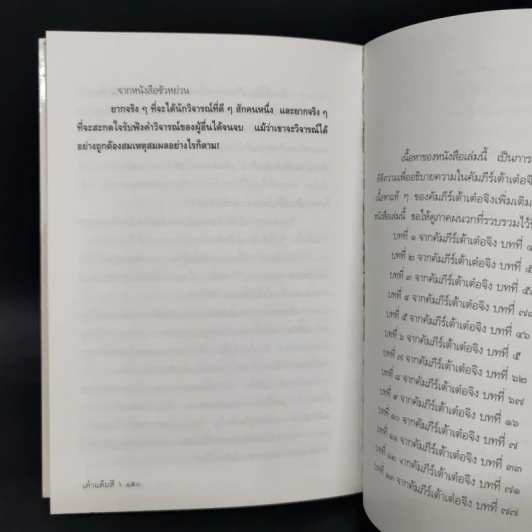 ...จากหนังสือชิวหย่วน
ยากจริง ๆ ที่จะได้นักวิจารณ์ที่ดี ๆ สักคนหนึ่ง และยากจริง ๆ
ที่จะสะกดใจรับฟังคำวิจารณ์ของผู้อื่นได้จนจบ แม้ว่าเขาจะวิจารณ์ได้
อย่างถูกต้องสมเหตุสมผลอย่างไรก็ตาม!
เต๋าแต้มสี \
เนื้อหาของหนังสือเล่มนี้ เป็นการ
ที่ตีความเพื่ออธิบายความในคัมภีร์เต้าเต๋อจิง
เนื้อหาแท้ ๆ ของคัมภีร์เต้าเต๋อจิงเพิ่มเติม
หนังสือเล่มนี้ ขอให้ดูภาคผนวกที่รวบรวมไว้
บทที่ ๑ จากคัมภีร์เต้าเต๋อจิง บทที่
บทที่ ๒ จากคัมภีร์เต้าเต๋อจิง บทที่
บทที่ ๓ จากคัมภีร์เต้าเต๋อจิง บทที่
บทที่ ๔ จากคัมภีร์เต้าเต๋อจิง บทที่
บทที่ ๕ จากคัมภีร์เต้าเต๋อจิง บทที่ ๔๖
บทที่ ๖ จากคัมภีร์เต้าเต๋อจิง บทที่ ๕
บทที่ ๗ จากคัมภีร์เต้าเต๋อจิง บทที่ ๖๒
บทที่ ๘ จากคัมภีร์เต้าเต๋อจิง บทที่ ๖๗
บทที่ ๙ จากคัมภีร์เต้าเต๋อจิง บทที่ ๑๖
บทที่ ๑๐ จากคัมภีร์เต้าเต๋อจิง บทที่ ๗
บทที่ ๑๑ จากคัมภีร์เต้าเต๋อจิง บทที่ ๓๓
บทที่ ๑๒ จากคัมภีร์เต้าเต๋อจิง บทที่ ๗๑
บทที่ ๑๓ จากคัมภีร์เต้าเต๋อจิง บทที่ ๗๗